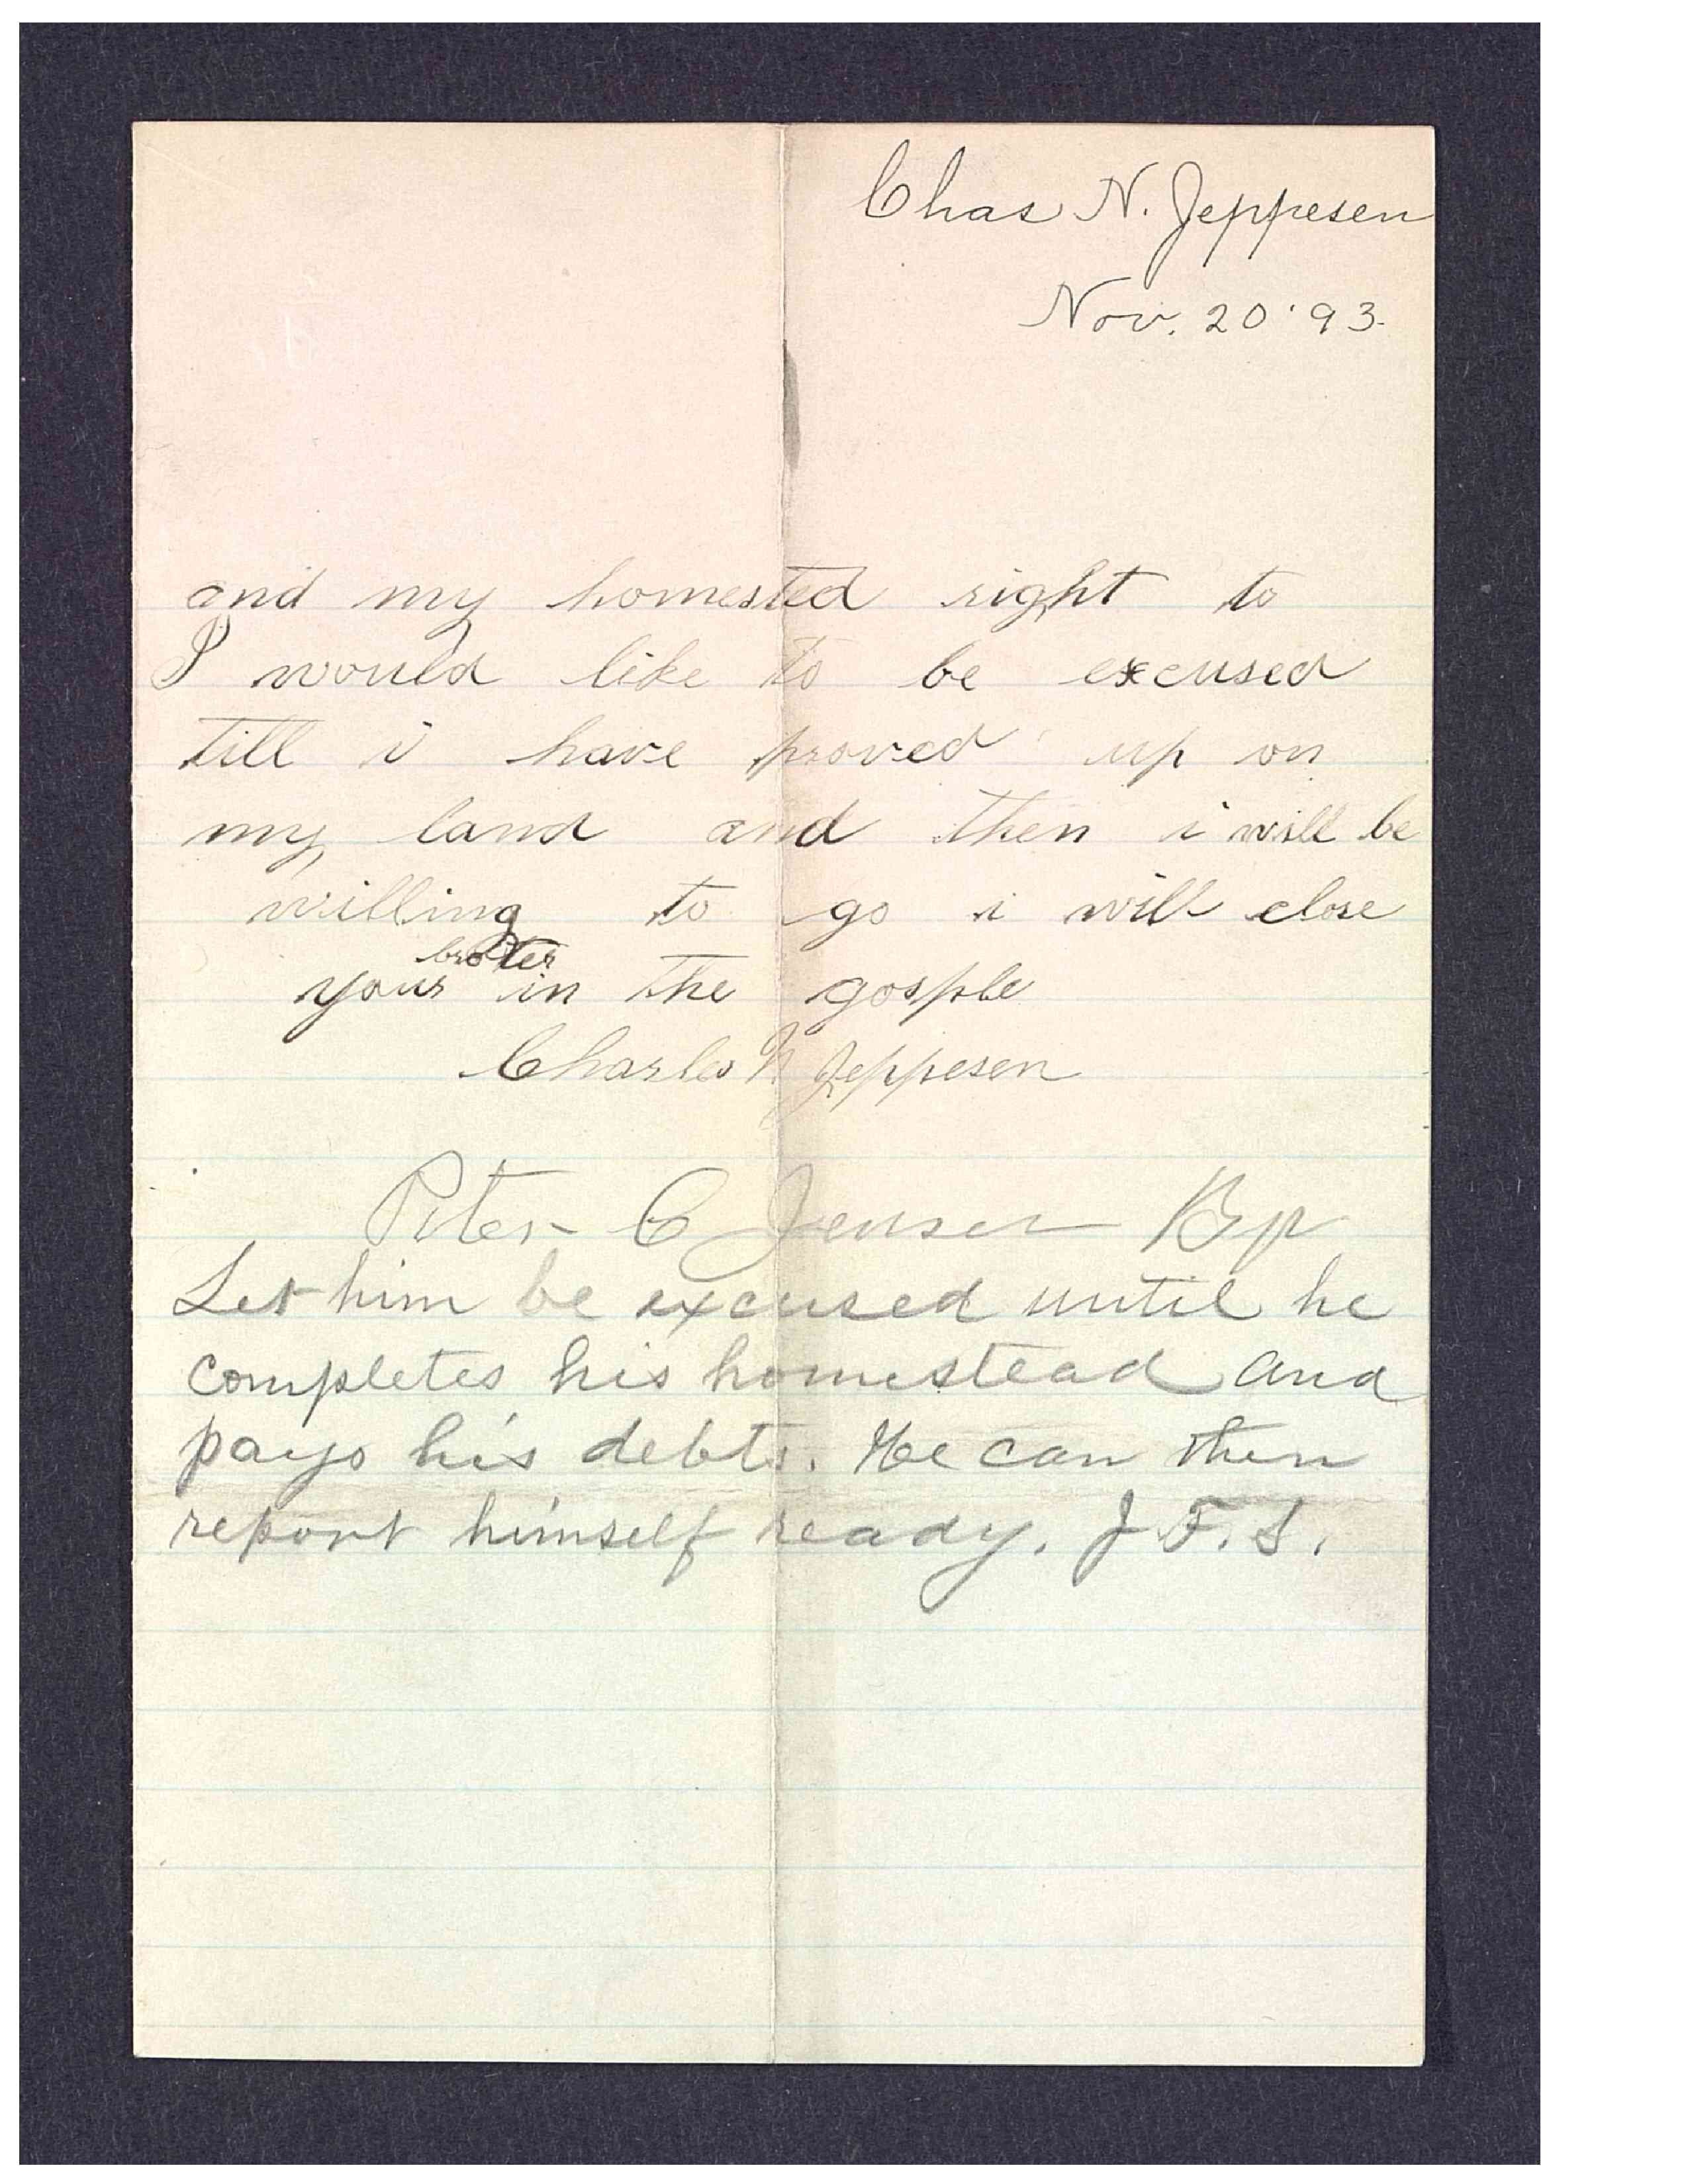 Chas N. Jeppesen
Nov. 20 '93.
and my homested right to
I would like to be excused
till i have proved up on
my land and then i will be
willing to go i will close
broter
your in the gosple
Charles N Jeppesen
Peter C Jensen Bp
Let him be excused until he
completes his homestead and
pays his debts. He can then
report himself ready. J F. S.